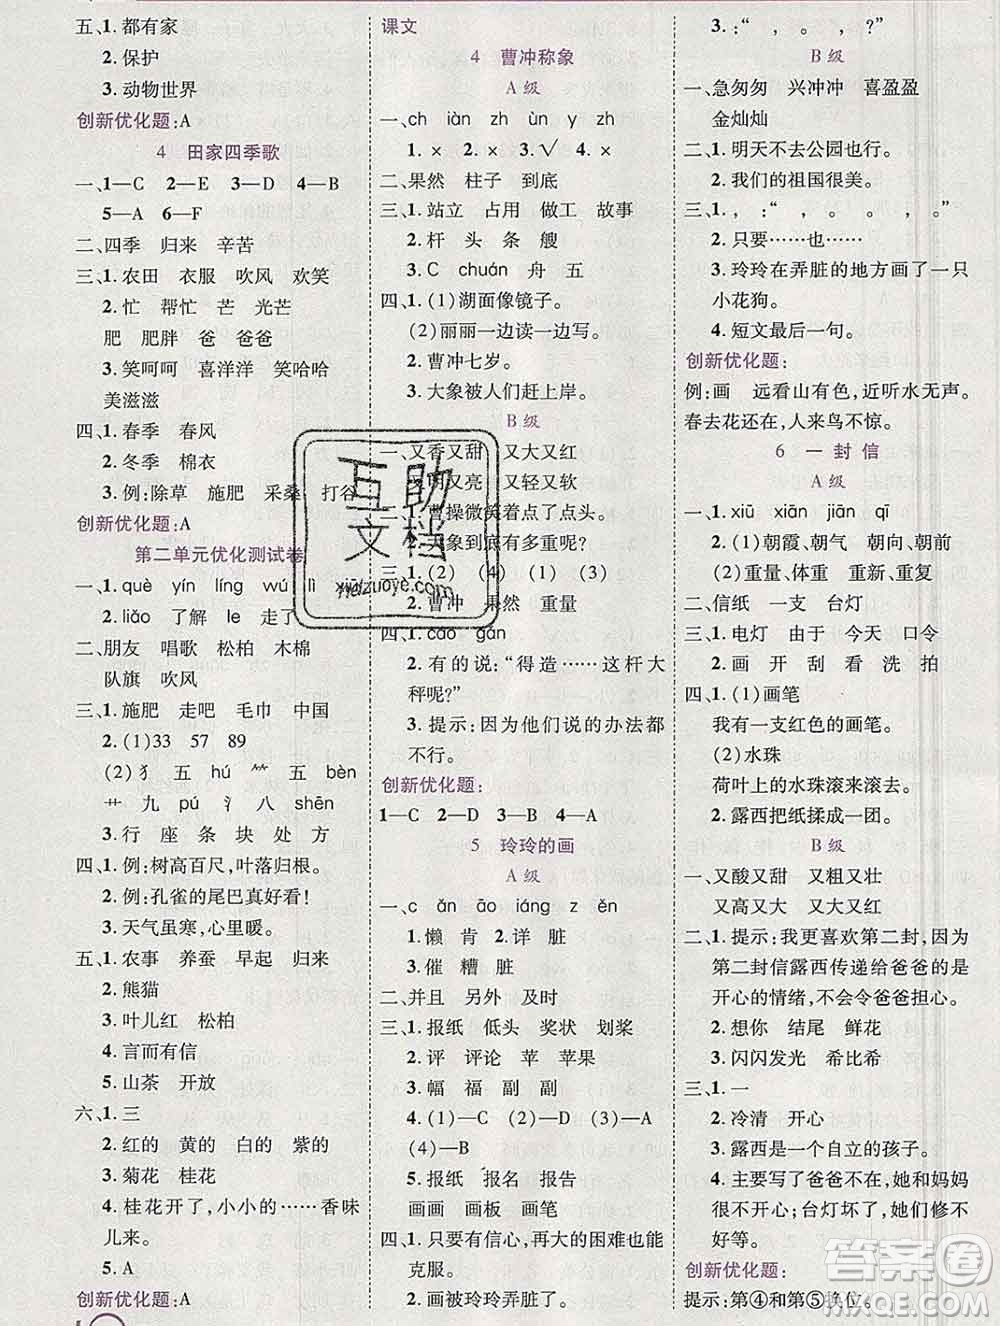 五、1. 都有家
2. 保护
3. 动物世界
创新优化题:A
4 田家四季歌
一、1—C 2—E 3—D 4—B
5—A 6—F
二、四季 归来 辛苦
三、1. 农田 衣服 吹风 欢笑
2. 忙 帮忙 芒 光芒
肥 肥胖 爸 爸爸
3. 笑呵呵 喜洋洋 笑哈哈
美滋滋
四、1. 春季 春风
2. 冬季 棉衣
3. 例:除草 施肥 采桑 打谷
创新优化题:A
第二单元优化测试卷
一、1. què yín líng wú lì
2. liǎo 了解 le 走了
二、朋友 唱歌 松柏 木棉
队旗 吹风
三、1. 施肥 走吧 毛巾 中国
2. (1)33 57 89
(2)犭 五 hú ⺮ 五 bèn
艹 九 pú 氵 八 shēn
3. 行 座 条 块 处 方
四、1. 例:树高百尺,叶落归根。
2. 例:孔雀的尾巴真好看!
3. 天气虽寒,心里暖。
五、1. 农事 养蚕 早起 归来
2. 熊猫
3. 叶儿红 松柏
4. 言而有信
5. 山茶 开放
六、1. 三
2. 红的 黄的 白的 紫的
3. 菊花 桂花
4. 桂花开了,小小的……香味
儿来。
5. A
创新优化题:A
课文
4 曹冲称象
A 级
一、ch iàn zh ùn y zh
1. × 2. × 3. √ 4. ×
二、果然 柱子 到底
三、1. 站立 占用 做工 故事
2. 杆 头 条 艘
3. C chuán 舟 五
四、1. (1)湖面像镜子。
(2)丽丽一边读一边写。
2. 曹冲七岁。
3. 大象被人们赶上岸。
B 级
一、又香又甜 又大又红
又亮 又轻又软
曹操微笑着点了点头。
2. 大象到底有多重呢?
三、1. (2) (4) (1) (3)
2. 曹冲 果然 重量
四、1. cāo gǎn
2. 有的说:“得造……这杆大
秤呢?”
3. 提示:因为他们说的办法都
不行。
创新优化题:
1—C 2—D 3—B 4—A
5 玲玲的画
A 级
一、c ǎn āo iáng z ěn
1. 懒 肯 2. 详 脏
3. 催 糟 脏
二、并且 另外 及时
三、1. 报纸 低头 奖状 划桨
2. 评 评论 苹 苹果
3. 幅 福 副 副
4. (1)—C (2)—D (3)—A
(4)—B
5. 报纸 报名 报告
画画 画板 画笔
四、1. 只要有信心,再大的困难也能
克服。
2. 画被玲玲弄脏了。
3. :“ , 。 , ?”
B 级
一、急匆匆 兴冲冲 喜盈盈
金灿灿
二、1. 明天不去公园也行。
2. 我们的祖国很美。
三、1. , :“ , 。 。 , 。”
2. 只要……也……
3. 玲玲在弄脏的地方画了一只
小花狗。
4. 短文最后一句。
创新优化题:
例:画 远看山有色,近听水无声。
春去花还在,人来鸟不惊。
6 一 封 信
A 级
一、1. xiū xiān jiān qī
2. (1)朝霞、朝气 朝阳、朝前
(2)重量、体重 重新、重复
二、信纸 一支 台灯
三、1. 电灯 由于 今天 口令
2. 画 开 刮 看 洗 拍
四、1. (1)画笔
我有一支红色的画笔。
(2)水珠
荷叶上的水珠滚来滚去。
2. 露西把纸揉成一团。
B 级
一、又酸又甜 又粗又壮
又高又大 又大又圆
二、1. 提示:我更喜欢第二封,因为
第二封信露西传递给爸爸的是
开心的情绪,不会让爸爸担心。
2. 想你 结尾 鲜花
3. 闪闪发光 希比希
三、1. 一
2. 冷清 开心
3. 露西是一个自立的孩子。
4. 主要写了爸爸不在,她和妈妈
很不开心;台灯坏了,她们修不
好等。
创新优化题:
提示:第④和第⑤换位。
互助
文档
答案圈